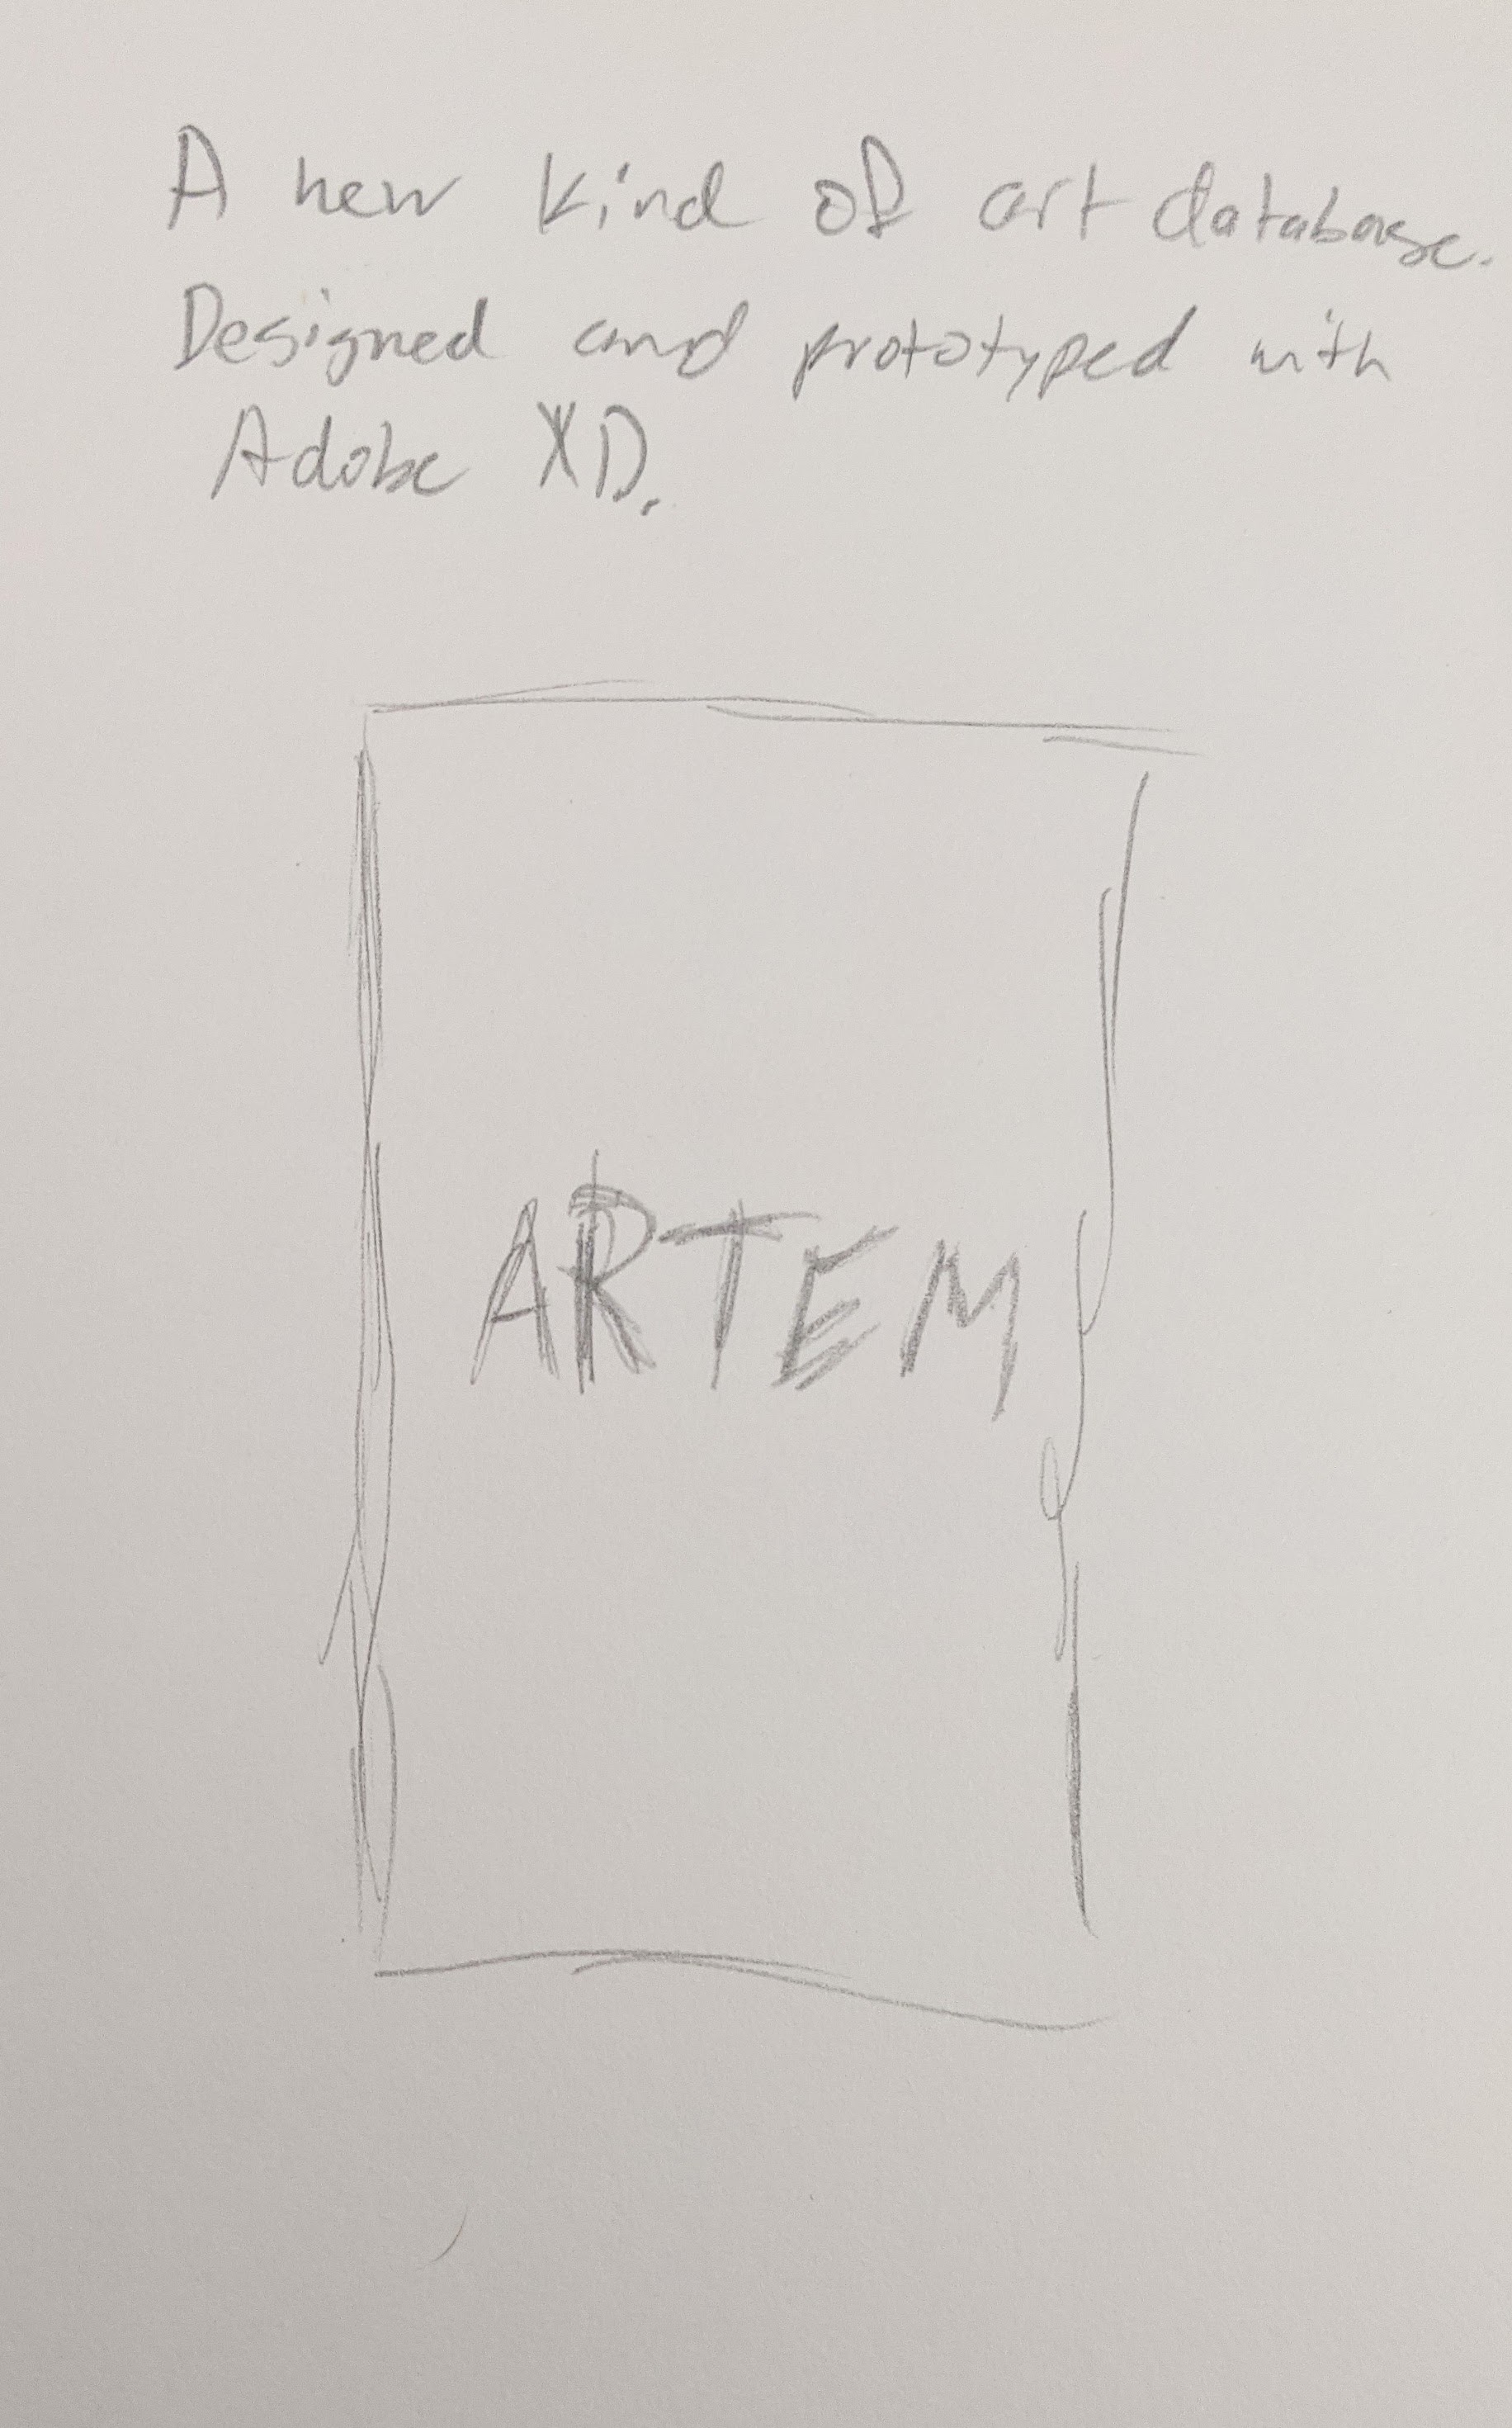 A new kind of art database.
Designed and prototyped with
Adobe XD.
ARTEM